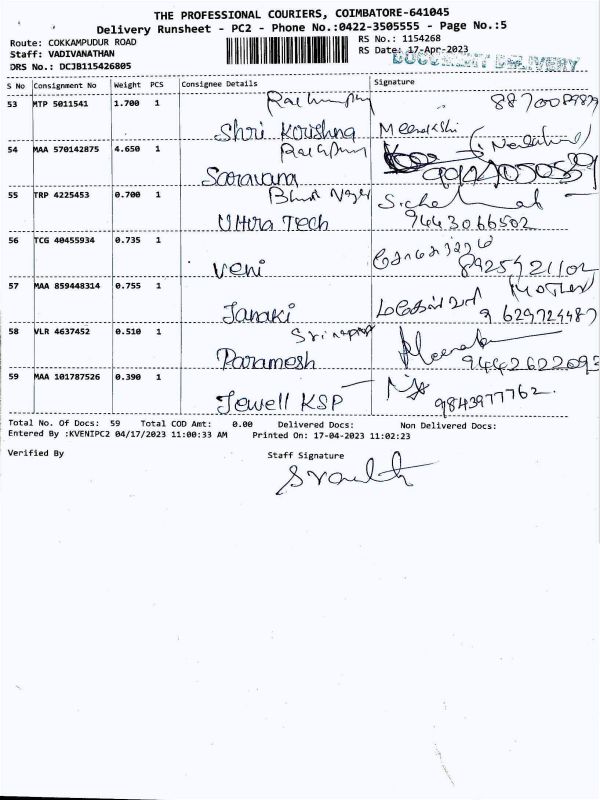 THE PROFESSIONAL COURIERS, COIMBATORE-641045
Delivery Runsheet - PC2 - Phone No.:0422-3505555 - Page No.:5
Route: COKKAMPUDUR ROAD RS No.: 1154268
Staff: VADIVANATHAN RS Date: 17-Apr-2023
DOCUMENT DELIVERY
DRS No.: DCJB115426805
S No Consignment No Weight PCS Consignee Details Signature
53 MTP 5011541 1.700 1
Shri Krishna Meenakshi
54 MAA 570142875 4.650 1
Saravana
55 TRP 4225453 0.700 1
Ultra Tech 9443066502
56 TCG 40455934 0.735 1
Veni 8925921102
57 MAA 859448314 0.755 1 MOTHER
Janaki 9629729487
58 VLR 4637452 0.510 1
Paramesh 9442622093
59 MAA 101787526 0.390 1
Jewell KSP 9843977762.
Total No. Of Docs: 59 Total COD Amt: 0.00 Delivered Docs: Non Delivered Docs:
Entered By :KVENIPC2 04/17/2023 11:00:33 AM Printed On: 17-04-2023 11:02:23
Verified By Staff Signature